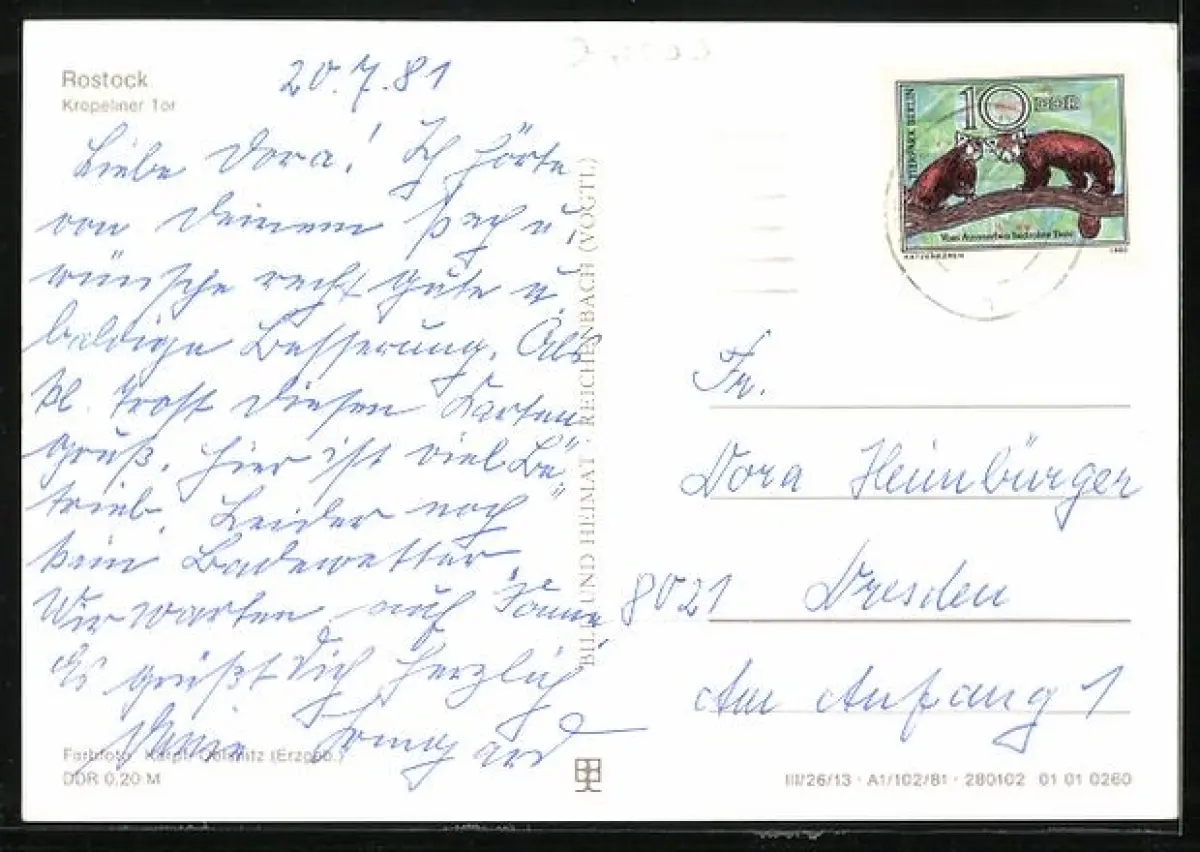 Rostock
Kröpeliner Tor
20.7.81
Liebe Dora! Ich hörte
von Deinem Pech u.
wünsche recht gute u.
baldige Besserung. Als
kl. Trost diesen Karten
gruß. Hier ist viel Be-
trieb. Leider noch
kein Badewetter.
Wir warten auf Sonne!
Es grüßt Dich herzlich
Deine
Farbfoto: Karpf, Oelsnitz (Erzgeb.)
DDR 0,20 M
BILD UND HEIMAT · REICHENBACH (VOGTL)
TIERPARK BERLIN
10 DDR
Vom Aussterben bedrohte Tiere
KATZENBÄREN
1980
Fr.
Dora Heimbürger
8021 Dresden
Am Anfang 1
III/26/13 · A1/102/81 · 280102 01 01 0260